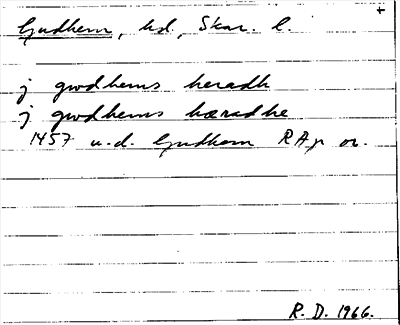 +
Gudhem, hd., Skar. l.
j gwdhems heradh
j gwdhems hæradhe
1457 u.d. Gudhem RAp or.
R. D. 1966.